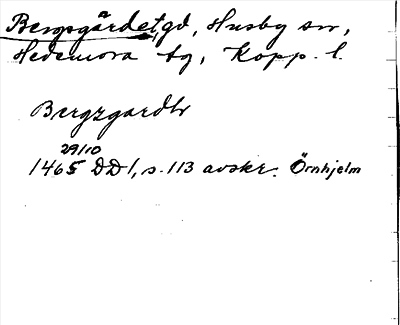 Bergsgårdet, gd, Husby sn,
Hedemora tg, Kopp. l.
Bergzgardh
29/10
1465 DD1, s. 113 avskr. Örnhjelm